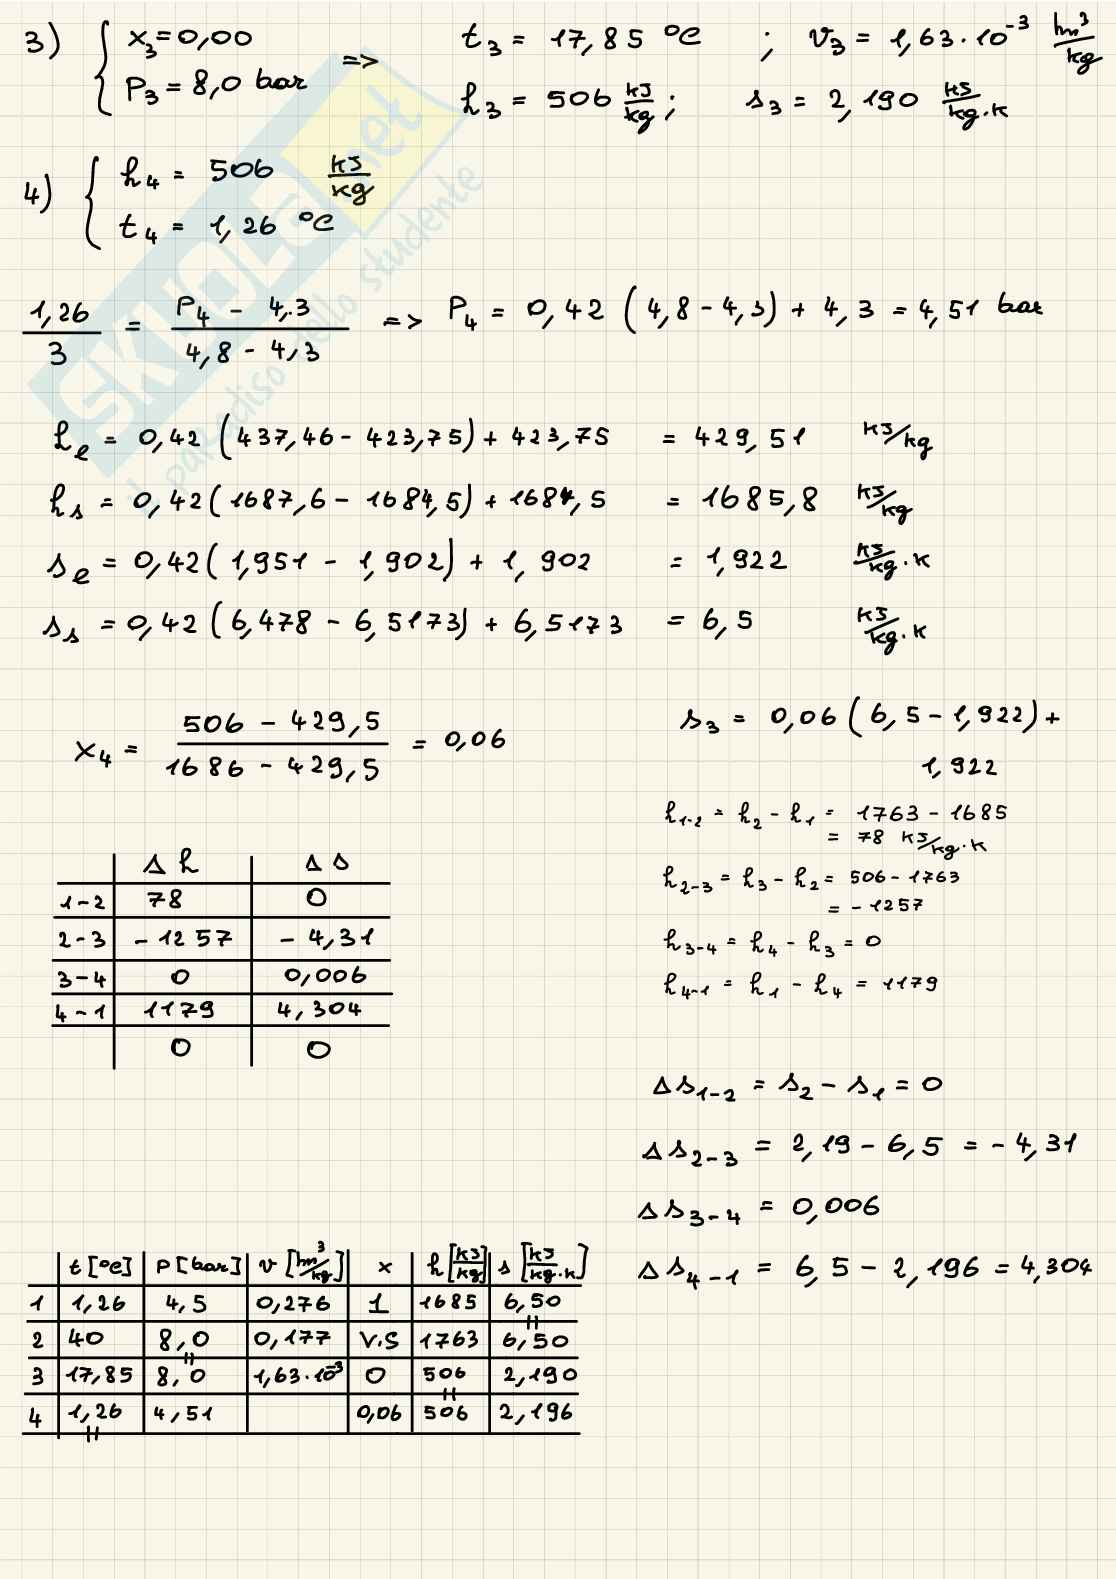 3) { x₃ = 0,00 => t₃ = 17,85 °C ; v₃ = 1,63 · 10⁻³ m³/kg
P₃ = 8,0 bar h₃ = 506 kJ/kg ; s₃ = 2,190 kJ/kg·K
4) { h₄ = 506 kJ/kg
t₄ = 1,26 °C
1,26/3 = (P₄ - 4,3)/(4,8 - 4,3) => P₄ = 0,42 (4,8 - 4,3) + 4,3 = 4,51 bar
hₑ = 0,42 (437,46 - 423,75) + 423,75 = 429,51 kJ/kg
hₛ = 0,42 (1687,6 - 1684,5) + 1684,5 = 1685,8 kJ/kg
sₑ = 0,42 (1,951 - 1,902) + 1,902 = 1,922 kJ/kg·K
sₛ = 0,42 (6,478 - 6,5173) + 6,5173 = 6,5 kJ/kg·K
x₄ = (506 - 429,5)/(1686 - 429,5) = 0,06
s₃ = 0,06 (6,5 - 1,922) +
1,922
h₁₋₂ = h₂ - h₁ = 1763 - 1685
= 78 kJ/kg·K
h₂₋₃ = h₃ - h₂ = 506 - 1763
= - 1257
h₃₋₄ = h₄ - h₃ = 0
h₄₋₁ = h₁ - h₄ = 1179
Δh Δs
1-2 78 0
2-3 -1257 -4,31
3-4 0 0,006
4-1 1179 4,304
0 0
Δs₁₋₂ = s₂ - s₁ = 0
Δs₂₋₃ = 2,19 - 6,5 = - 4,31
Δs₃₋₄ = 0,006
Δs₄₋₁ = 6,5 - 2,196 = 4,304
t [°C] P [bar] v [m³/kg] x h [kJ/kg] s [kJ/kg·K]
1 1,26 4,5 0,276 1 1685 6,50
2 40 8,0 0,177 V.S 1763 6,50
3 17,85 8,0 1,63·10⁻³ 0 506 2,190
4 1,26 4,51 0,06 506 2,196
SKUOLA.net
il paradiso dello studente